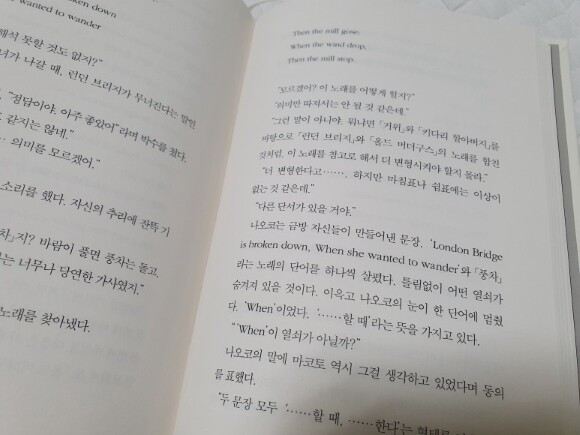 ken down
e wanted to wander
해석 못할 것도 없지?"
녀가 나갈 때, 런던 브리지가 무너진다는 말인
"정답이야. 아주 좋았어"라며 박수를 쳤다.
같지는 않네."
…… 의미를 모르겠어."
소리를 했다. 자신의 추리에 잔뜩 기
차」지? 바람이 불면 풍차는 돌고,
는 너무나 당연한 가사였지."
노래를 찾아냈다.
Then the mill goes;
When the wind drop,
Then the mill stop.
"모르겠어? 이 노래를 어떻게 할지?"
"의미만 따져서는 안 될 것 같은데."
"그런 말이 아니야. 뭐냐면 「거위」와 「키다리 할아버지」를
바탕으로 「런던 브리지」와 「올드 머더구스」의 노래를 합친
것처럼, 이 노래를 참고로 해서 더 변형시켜야 할지 몰라."
"더 변형한다고……. 하지만 마침표나 쉼표에는 이상이
없는 것 같은데."
"다른 단서가 있을 거야."
나오코는 금방 자신들이 만들어낸 문장, 'London Bridge
is broken down, When she wanted to wander'와 「풍차」
라는 노래의 단어를 하나씩 살폈다. 틀림없이 어떤 열쇠가
숨겨져 있을 것이다. 이윽고 나오코의 눈이 한 단어에 멈췄
다. 'When'이었다. '……할 때'라는 뜻을 가지고 있다.
"'When'이 열쇠가 아닐까?"
나오코의 말에 마코토 역시 그걸 생각하고 있었다며 동의
를 표했다.
"두 문장 모두 '……할 때, ……한다'는 형태로